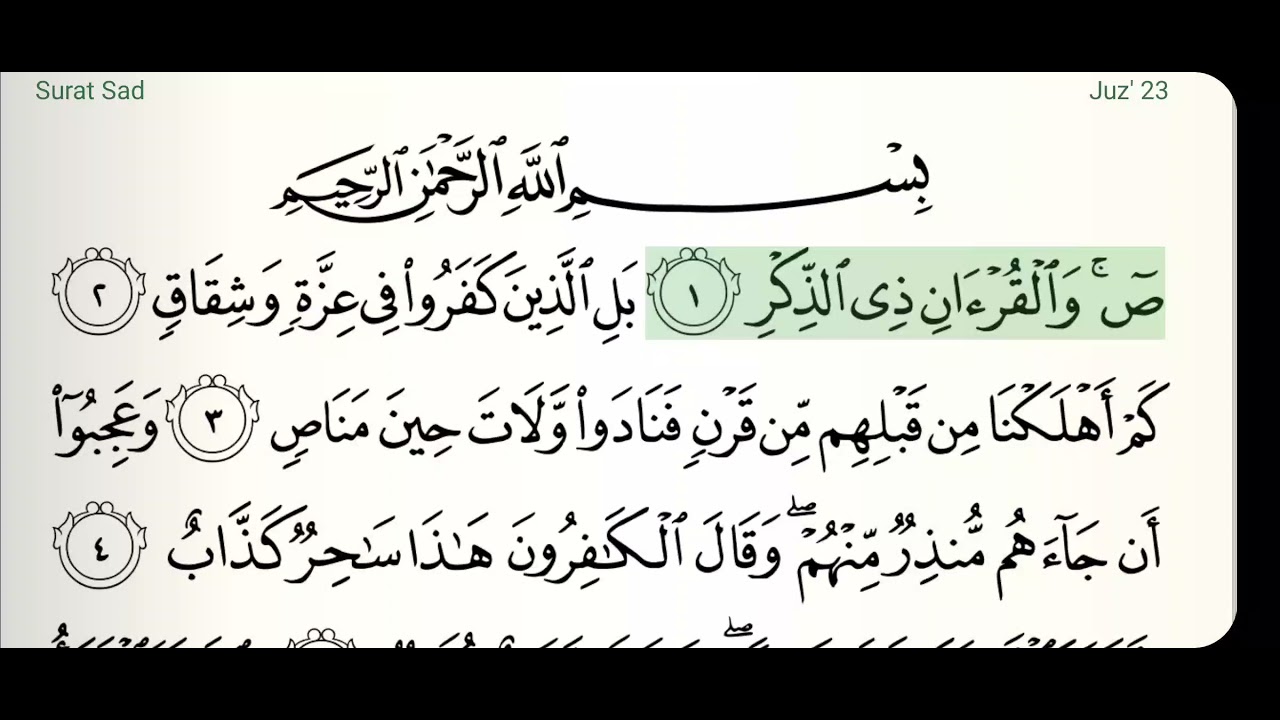 Surat Sad
Juz' 23
بِسْمِ ٱللَّهِ ٱلرَّحْمَٰنِ ٱلرَّحِيمِ
صٓ ۚ وَٱلْقُرْءَانِ ذِى ٱلذِّكْرِ ١ بَلِ ٱلَّذِينَ كَفَرُوا۟ فِى عِزَّةٍ وَشِقَاقٍ ٢
كَمْ أَهْلَكْنَا مِن قَبْلِهِم مِّن قَرْنٍ فَنَادَوا۟ وَّلَاتَ حِينَ مَنَاصٍ ٣ وَعَجِبُوٓا۟
أَن جَآءَهُم مُّنذِرٌ مِّنْهُمْ ۖ وَقَالَ ٱلْكَٰفِرُونَ هَٰذَا سَٰحِرٌ كَذَّابٌ ٤